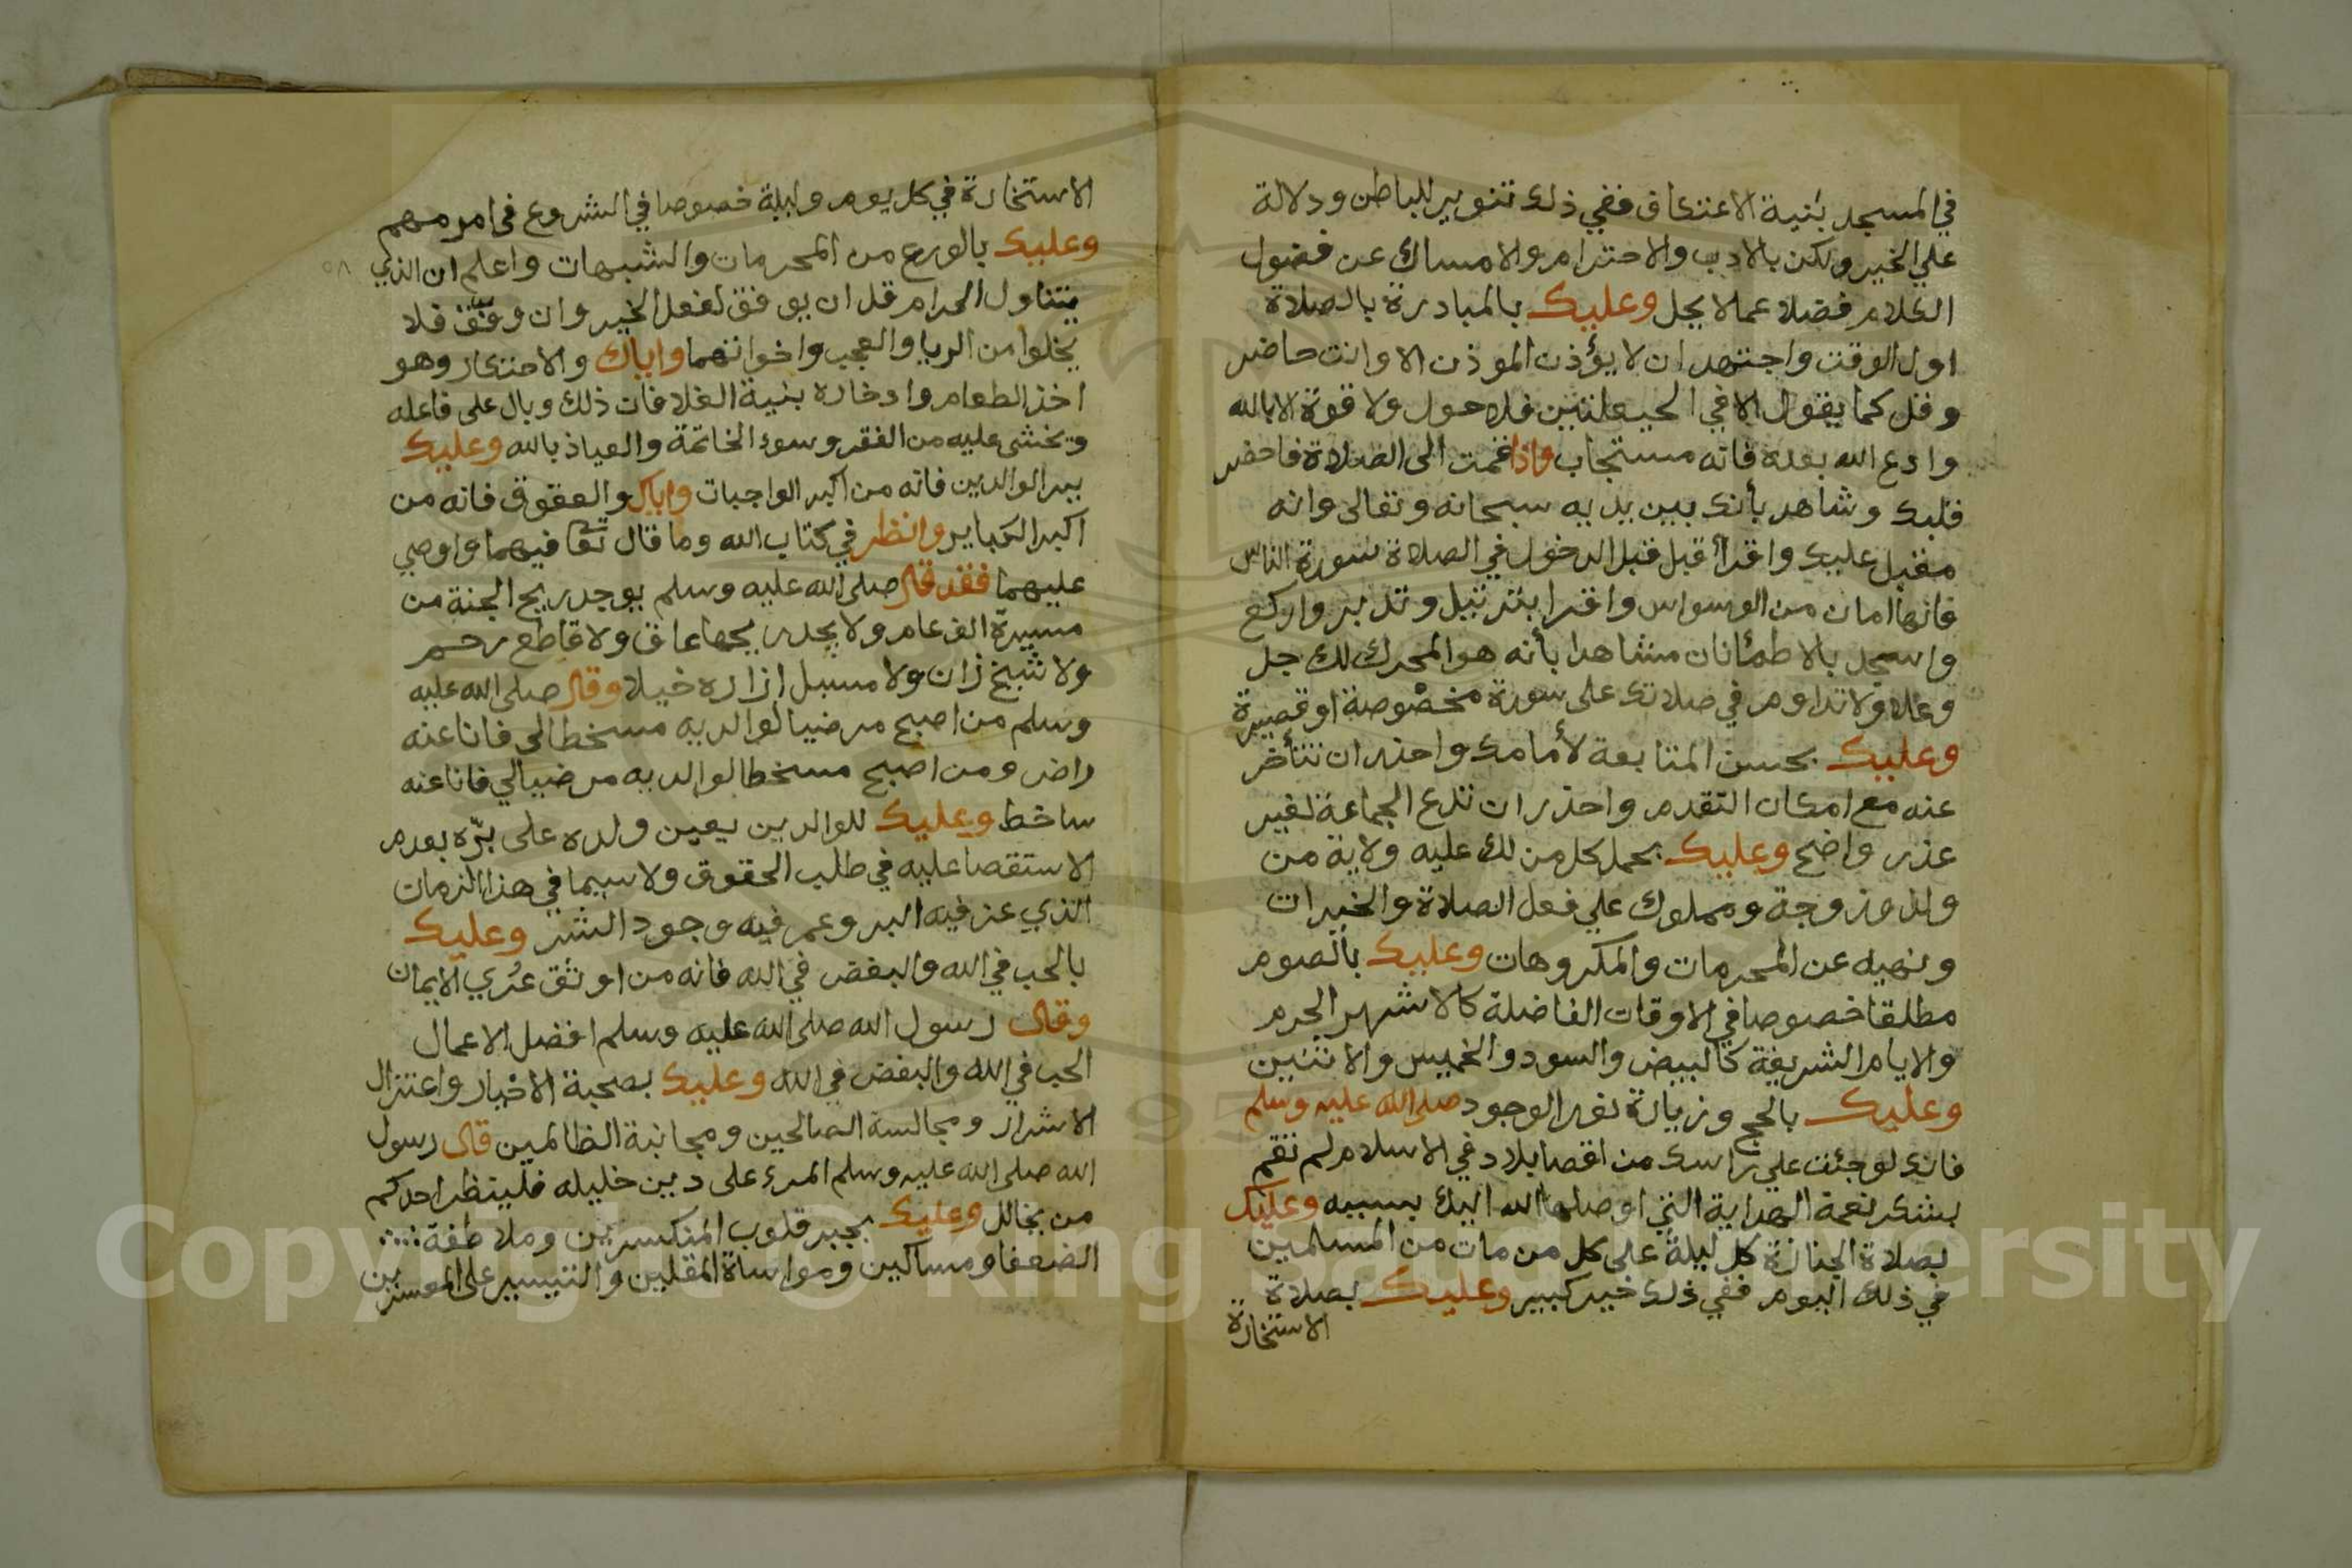 في المسجد بنية الاعتكاف ففي ذلك تنوير للباطن ودلالة
علي الخير ولكن بالادب والاحترام والامساك عن فضول
الكلام فضلا عما لا يحل وعليك بالمبادرة بالصلاة
اول الوقت واجتهد ان لا يؤذن الموذن الا وانت حاضر
وقل كما يقول الا في الحيعلتين فلا حول ولا قوة الا بالله
وادع الله بعده فانه مستجاب واذا قمت الى الصلاة فاحضر
قلبك وشاهد بأنك بين يديه سبحانه وتعالى وانه
مقبل عليك واقرأ قبل قبل الدخول في الصلاة سورة الناس
فانها امان من الوسواس واقرا بترتيل وتدبر واركع
واسجد بالاطمئانان مشاهدا بأنه هو المحرك لك جل
وعلا ولا تداوم في صلاتك على سورة مخصوصة او قصيرة
وعليك بحسن المتابعة لأمامك واحذر ان تتأخر
عنه مع امكان التقدم واحذر ان تدع الجماعة لغير
عذر واضح وعليك بحمل كل من لك عليه ولاية من
ولد وزوجة ومملوك علي فعل الصلاة والخيرات
ونهيه عن المحرمات والمكروهات وعليك بالصوم
مطلقا خصوصا في الاوقات الفاضلة كالاشهر الحرم
والايام الشريفة كالبيض والسود والخميس والاثنين
وعليك بالحج وزيارة نور الوجود صلى الله عليه وسلم
فانك لو جئت علي راسك من اقصا بلاد في الاسلام لم تقم
بشكر نعمة الهداية التي اوصلها الله اليك بسببه وعليك
بصلاة الجنازة كل ليلة على كل من مات من المسلمين
في ذلك اليوم ففي ذلك خير كبير وعليك بصلاة
الاستخارة
الاستخارة في كل يوم وليلة خصوصا في الشروع في امر مهم
وعليك بالورع من المحرمات والشبهات واعلم ان الذي
يتناول الحرام قل ان يوفق لفعل الخير وان وفق فلا
يخلوا من الريا والعجب واخواتهما واياك والاحتكار وهو
اخذ الطعام وادخاره بنية الغلا فان ذلك وبال على فاعله
ويخشى عليه من الفقر وسوء الخاتمة والعياذ بالله وعليك
ببر الوالدين فانه من اكبر الواجبات واياك والعقوق فانه من
اكبر الكباير وانظر في كتاب الله وما قال تعا فيهما واوصي
عليهما فقد قال صلى الله عليه وسلم يوجد ريح الجنة من
مسيرة الف عام ولا يجد ريحها عاق ولا قاطع رحم
ولا شيخ زان ولا مسبل ازاره خيلا وقال صلى الله عليه
وسلم من اصبح مرضيا لوالديه مسخطا لي فانا عنه
راض ومن اصبح مسخطا لوالديه مرضيا لي فانا عنه
ساخط وعليك للوالدين يعين ولده على برّه بعدم
الاستقصا عليه في طلب الحقوق ولا سيما في هذا الزمان
الذي عز فيه البر وعم فيه وجود الشر وعليك
بالحب في الله والبغض في الله فانه من اوثق عُري الايمان
وقال رسول الله صلى الله عليه وسلم افضل الاعمال
الحب في الله والبغض في الله وعليك بصحبة الاخيار واعتزال
الاشرار ومجالسة الصالحين ومجانبة الظالمين قال رسول
الله صلى الله عليه وسلم المرء على دين خليله فلينظر احدكم
من يخالل وعليك بجبر قلوب المنكسرين وملاطفة
الضعفا ومساكين ومواساة المقلين والتيسير على المعسرين
Copyright © King Saud University